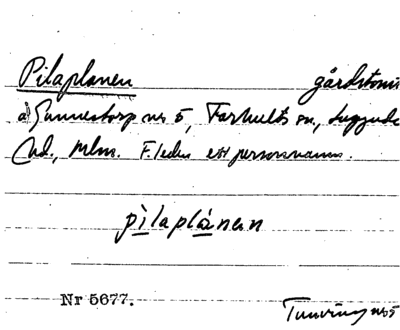 Pilaplanen gårdstomt
å Gunnestorp nr 5, Farhults sn., Luggude
hd., Mlm. F. leden ett personnamn.
pìlaplánen
Nr 5677.
Tunving nr 5